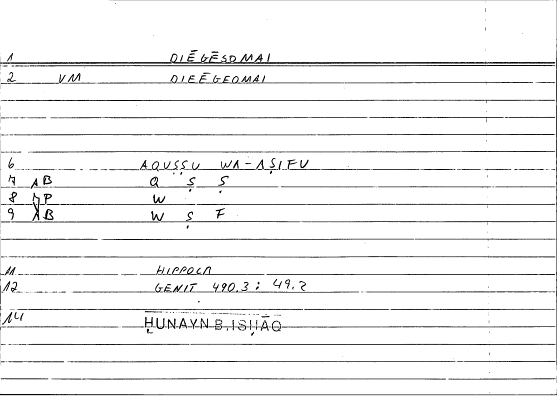 1 DIĒGĒSOMAI
2 VM DIEĒGEOMAI
6 AQUṢṢU WA-AṢIFU
7 AB Q Ṣ Ṣ
8 AP W
9 AB W Ṣ F
11 HIPPOCR
12 GENIT 490.3 : 49.2
14 ḤUNAYN B. ISḤĀQ